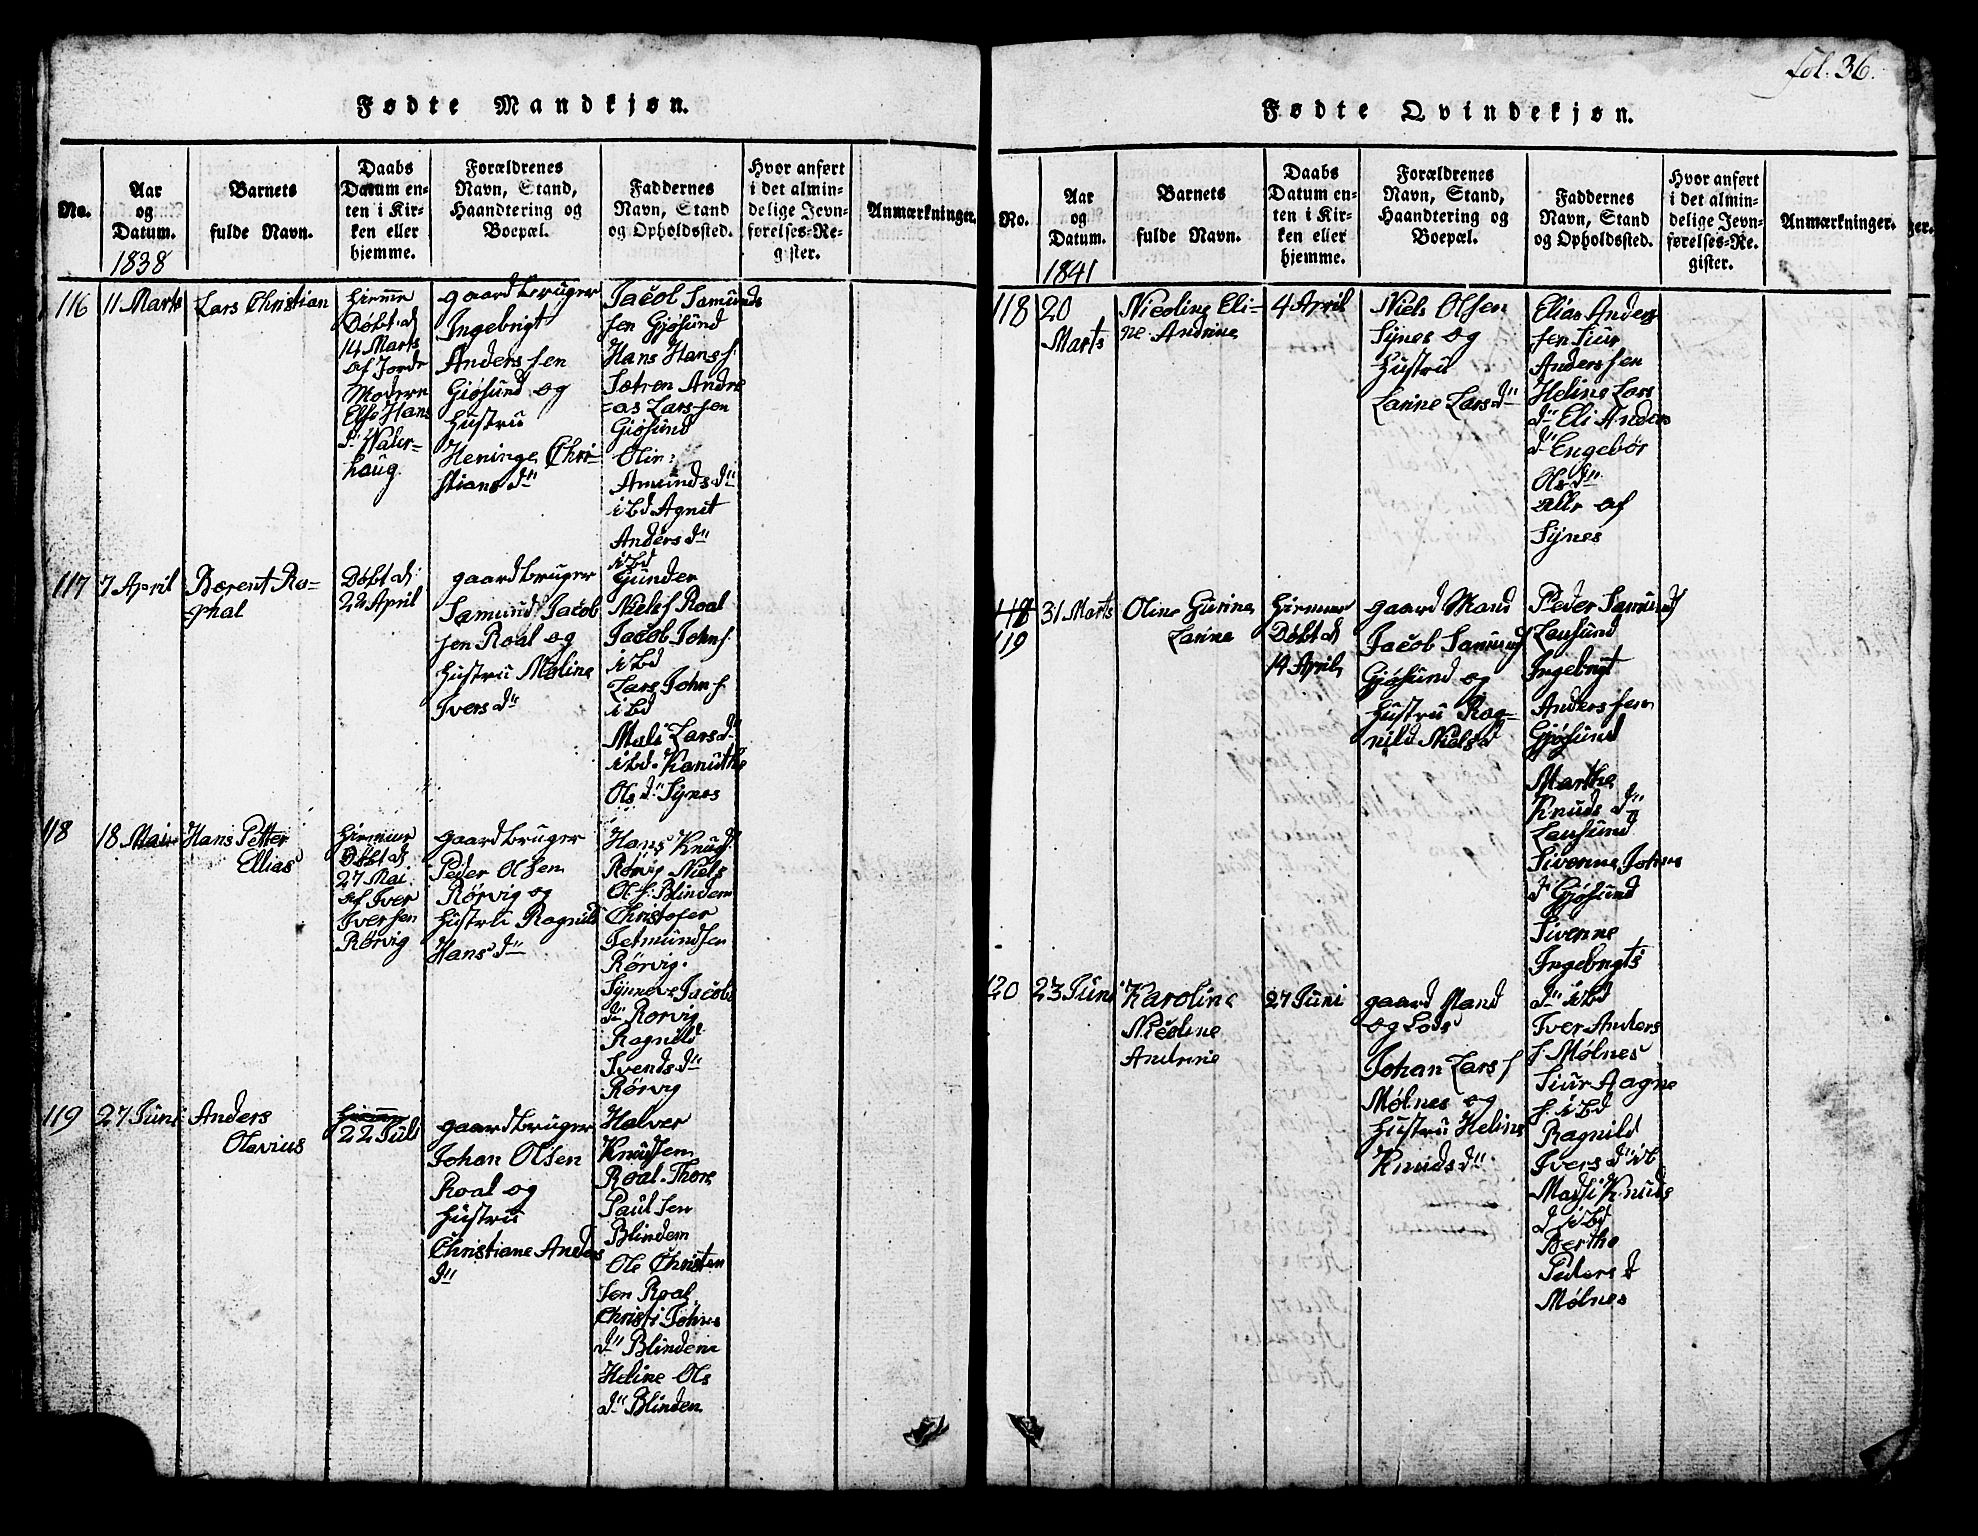 fol. 36.
Fødte Mandkjøn.
No.
Aar
og
Datum.
1838
Barnets
fulde Navn.
Daabs
Datum en-
ten i Kir-
ken eller
hjemme.
Forældrenes
Navn, Stand,
Haandtering og
Boepæl.
Faddernes
Navn, Stand
og Opholdssted.
Hvor anført
i det almin-
delige Jevn-
førelses-Re-
gister.
Anmærkninger.
116
11 Marts
Lars Christian
Hiemme
Døbt d
14 Marts
af Jorde
Modern
Else Hans
dr Walder-
haug
gaardbruger
Ingebrigt
Anderssen
Giøsund og
Hustru
Heninge Chri-
stians dr
Jacob Samunds
sen Gjøsund
Hans Hans s.
Sætren Andre
=as Larssen
Giøsund
Olin
Amunds dr
ibd Agnit
Anders dr
ibd
117
7 April
Bærent Ro-
phal
Døbt d
22 April
gaardbruger
Samund Jacob
sen Roal og
Hustru Moline
Ivers dr
Gunder
Niels s Roal
Jacob John s.
ibd
Lars John s
ibd
Mali Lars d
ibd. Kanuthe
Ols dr Synes
118
18 Mai
Hans Petter
Ellias
Hiemme
Døbt d
27 Mai
af Iver
Iversen
Rørvig
gaardbruger
Peder Olsen
Rørvig og
Hustru Ragnild
Hans dr
Hans Knuds.
Rørvig Niels
Ol. s. Blindem
Christofer
Jetmundsen
Rørvig.
Synneve Jacobs
dr Rørvig
Ragnild
Svends dr
Rørvig
119
27 Juni
Anders
Olavius
Hiemme
22 Juli
gaardbruger
Johan Olsen
Roal og
Hustru
Christiane Anders
dr
Halver
Knudsen
Roal. Thore
Paulsen
Blindem
Ole Christen
sen Roal
Christi Johns
dr Blindem
Heline Ols
dr Blinden
Fødte Qvindekjøn.
No.
Aar
og
Datum.
1841
Barnets
fulde Navn.
Daabs
Datum en-
ten i Kir-
ken eller
hjemme.
Forældrenes
Navn, Stand,
Haandtering og
Boepæl.
Faddernes
Navn, Stand
og Opholdssted.
Hvor anført
i det almin-
delige Jevn-
førelses-Re-
gister.
Anmærkninger.
118
20
Marts
Nicoline Eli-
ne Andrine
4 April
Niels Olsen
Synes og
Hustru
Larine Lars dr
Elias Anders
sen Siur
Anderssen
Heline Lars
dr Eli Anders
dr Engebør
Ols dr
alle af
Synes
118
119
31 Marts
Oline Gurine
Larine
Hiemme
Døbt d
14 April
gaard Mand
Jacob Samund
Gjøsund og
Hustru Rag-
nild Niels d
Peder Samund s
Lausund
Ingebrigt
Anderssen
Gjøsund
Marthe
Knuds dr
Lausund
Sivenne Johns
d Gjøsund
Sivenne
Ingebrigts
dr ibd
120
23 Juni
Karoline
Nicoline
Andrine
27 Juni
gaard Mand
og Lods
Johan Lars s
Mølnes og
Hustru Heline
Knuds dr
Iver Anders
s. Mølnes
Siur Aagne
s. ibd
Ragnild
Ivers dr ib
Marthi Knuds
d ibd
Berthe
Peders d
Mølnes